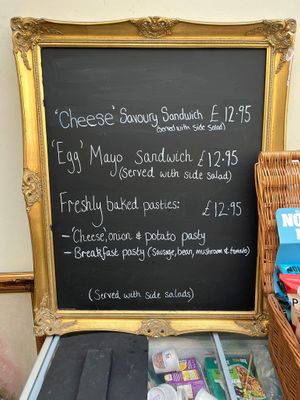 'Cheese' Savoury Sandwich £12.95
(served with side salad)
'Egg' Mayo Sandwich £12.95
(served with side salad)
Freshly baked pasties: £12.95
- 'Cheese', onion & potato pasty
- Breakfast pasty (Sausage, bean, mushroom & tomato)
(Served with side salads)
NO